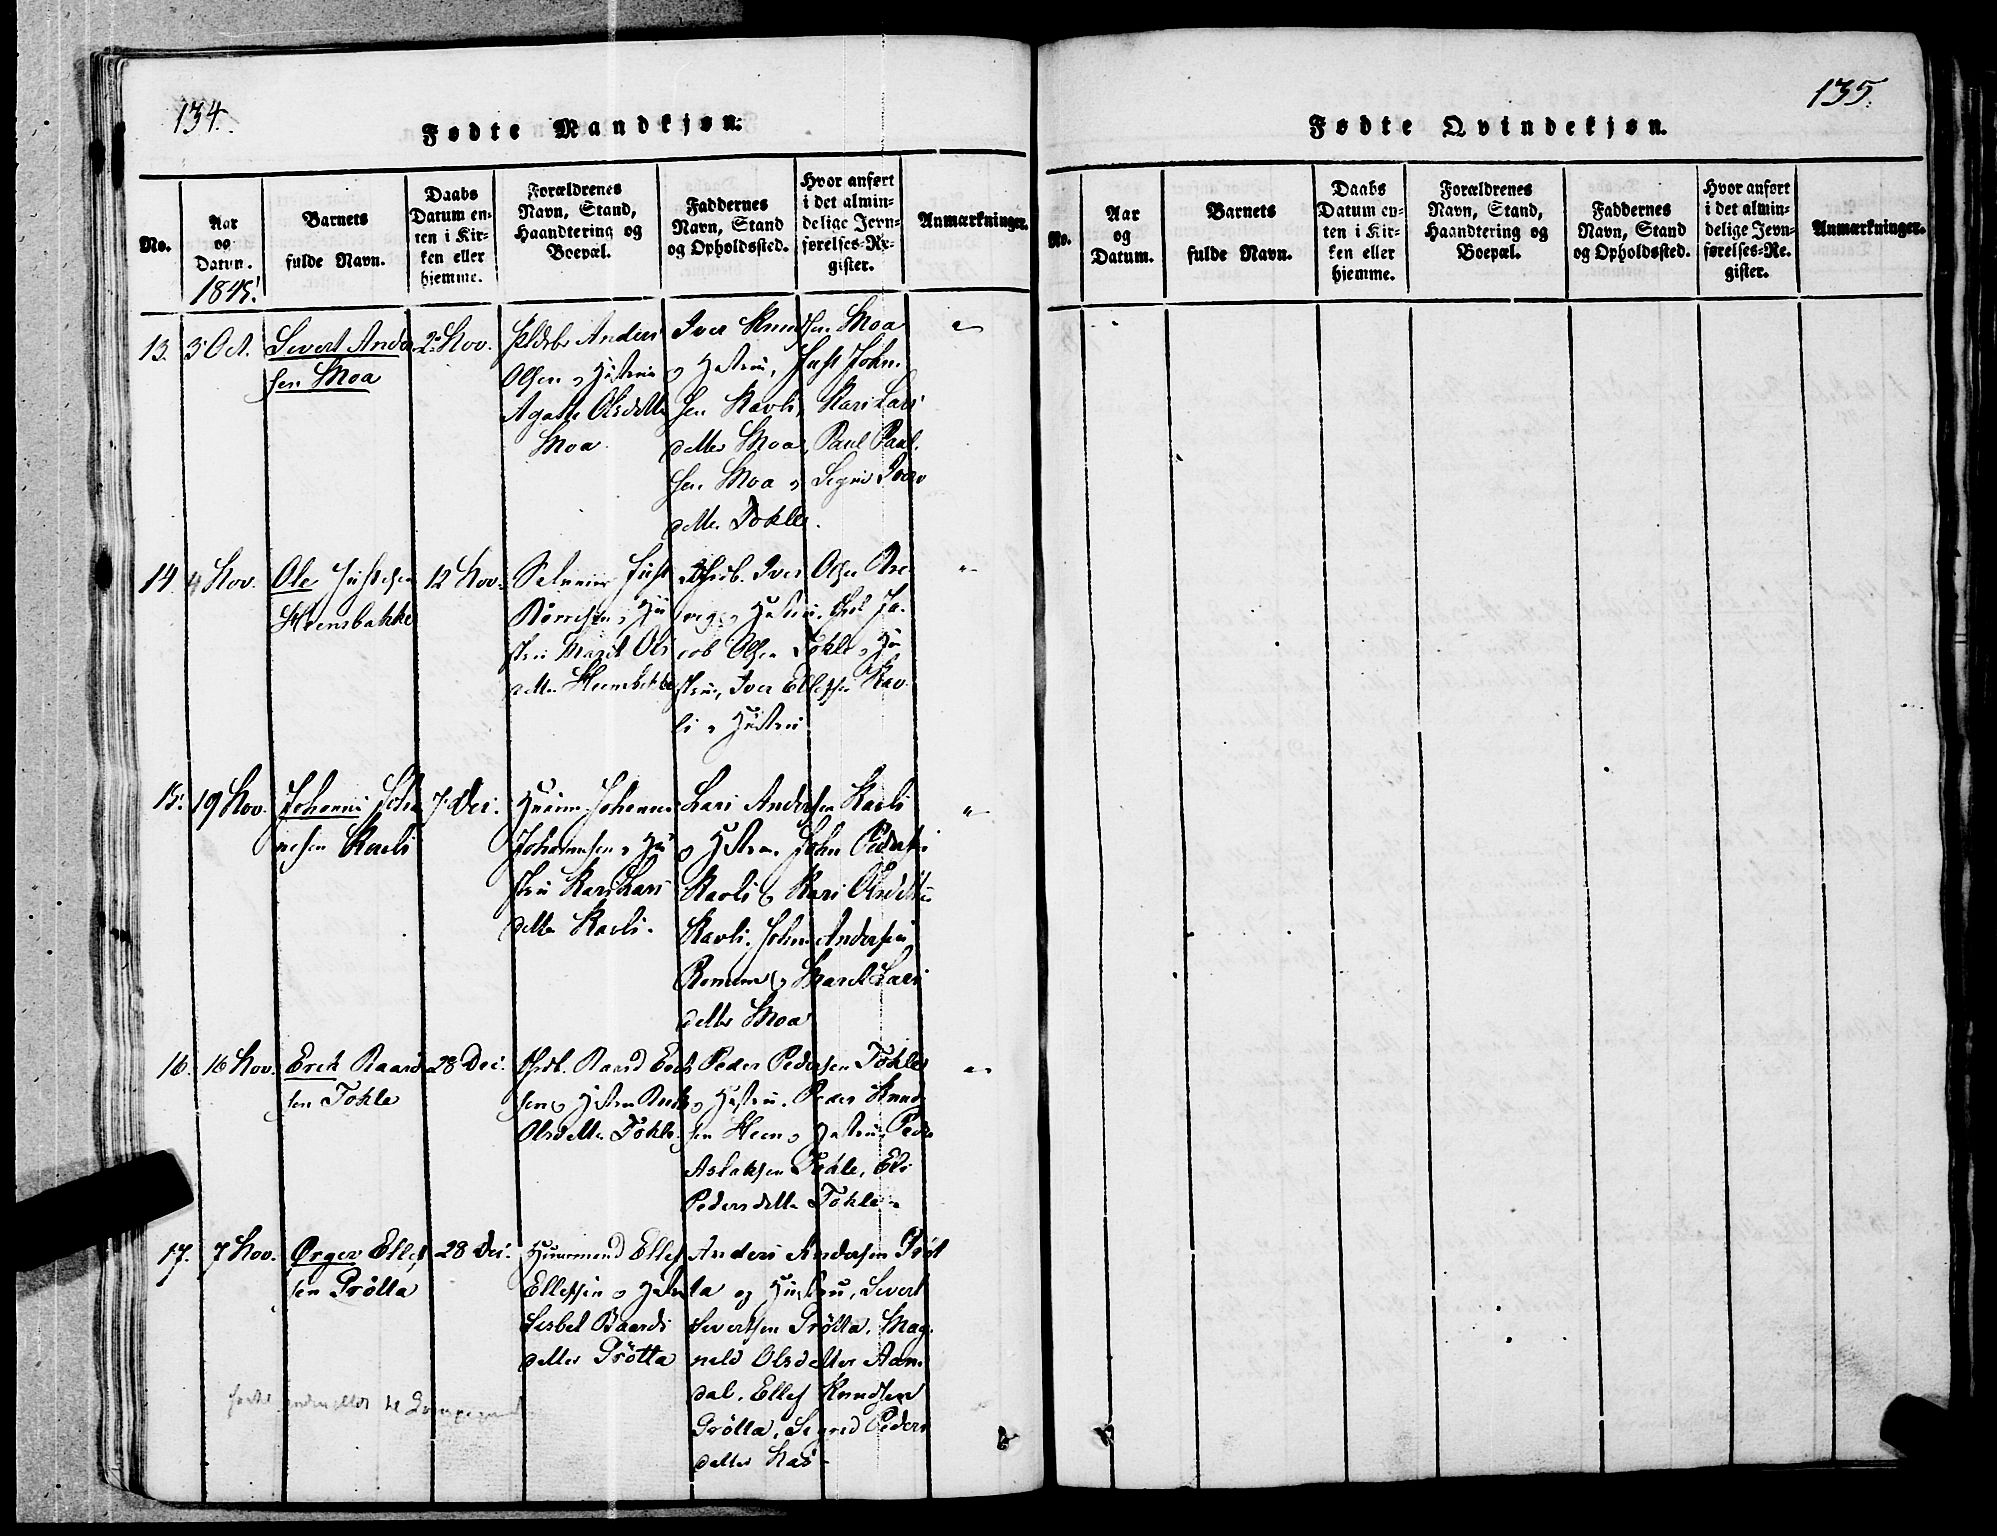 134.
Fødte Mandkjøn.
No.
Aar
og
Datum.
1845.
Barnets
fulde Navn.
Daabs
Datum en-
ten i Kir-
ken eller
hjemme.
Forældrenes
Navn, Stand,
Haandtering og
Boepæl.
Faddernes
Navn, Stand
og Opholdssted.
Hvor anført
i det almin-
delige Jevn-
førelses-Re-
gister.
Anmærkninger.
13.
5 Oct.
Sivert Anders
sen Moa
2 Nov.
Anders
Olsen og Hustru
Agate Olsdatter
Moa
Iver Knudsen Moa
og Hustru, Just John-
sen Ravli, Kari Lars
datter Moa, Paul Paul-
sen Moa og Sigrid Ivers
datter Tokle.
14
4 Nov.
Ole Justesen
Heensbakke
12 Nov.
Just
Børresen og Hu
stru Marit Ols
datter Heensbakke
Iver Olsen
og Hustru, Ja-
cob Olsen Tokle og Hu
stru, Iver Ellefsen Rav-
li og Hustru
15.
19 Nov.
Johannes Joha
nesen Ravli
7 Dec.
Huusm. Johannes
Johannesen og Hu
stru Kari Lars
datter Ravli.
Lars Andersen Ravli
og Hustru, John Pedersen
Ravli og Kari Olsdatter
Ravli. John Andersen
og Marit Lars
datter Moa
16.
16 Nov.
Erik Baard
sen Tokle
28 Dec.
Baard Erik
sen og Hustru
Olsdatter Tokle
Peder Pedersen Tokle
og Hustru. Peder Knud
sen Heen og Hustru, Peder
Aslaksen Tokle,
Pedersdatter Tokle
17.
7 Nov.
Ørger Ellef
sen Prøtta
28 Dec.
Huusmand Ellef
Ellefsen og Hustru
Lisbet Baards
datter Prøtta
Anders Andersen Prøt
ta og Hustru, Sivert
Sivertsen Prøtta, Mag-
nild Olsdatter Aan
dal, Ellef Knudsen
Prøtta, Sigrid Peders
datter
135.
Fødte Qvindekjøn.
No.
Aar
og
Datum.
Barnets
fulde Navn.
Daabs
Datum en-
ten i Kir-
ken eller
hjemme.
Forældrenes
Navn, Stand,
Haandtering og
Boepæl.
Faddernes
Navn, Stand
og Opholdssted.
Hvor anført
i det almin-
delige Jevn-
førelses-Re-
gister.
Anmærkninger.